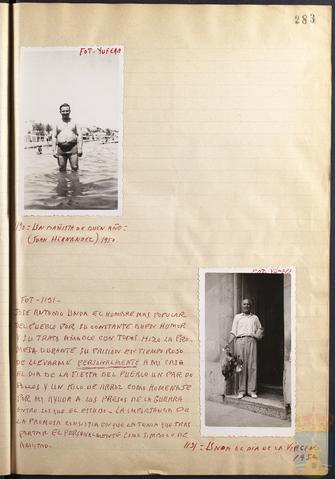 283
FOT- YUFERA
1190= UN BAÑISTA DE BUEN AÑO=
(JUAN HERNANDEZ) 1950
FOT. YUFERA
FOT-1191-
JOSE ANTONIO UNDA EL HOMBRE MAS POPULAR
DEL PUEBLO POR SU CONSTANTE BUEN HUMOR
Y SU TRATO AFABLE CON TODOS HIZO LA PRO-
MESA DURANTE SU PRISION EN TIEMPO ROJO
DE LLEVARME PERSONALMENTE A MI CASA
EL DIA DE LA FIESTA DEL PUEBLO UN PAR DE
POLLOS Y UN KILO DE ARROZ COMO HOMENAJE
POR MI AYUDA A LOS PRESOS DE LA GUERRA
ENTRE LOS QUE EL ESTUVO.- LA IMPORTANCIA DE
LA PROMESA CONSISTIA EN QUE LA TENIA QUE TRANS-
PORTAR EL PERSONALMENTE COMO SIMBOLO DE
1191= UNDA EL DIA DE LA VIRGEN
1950